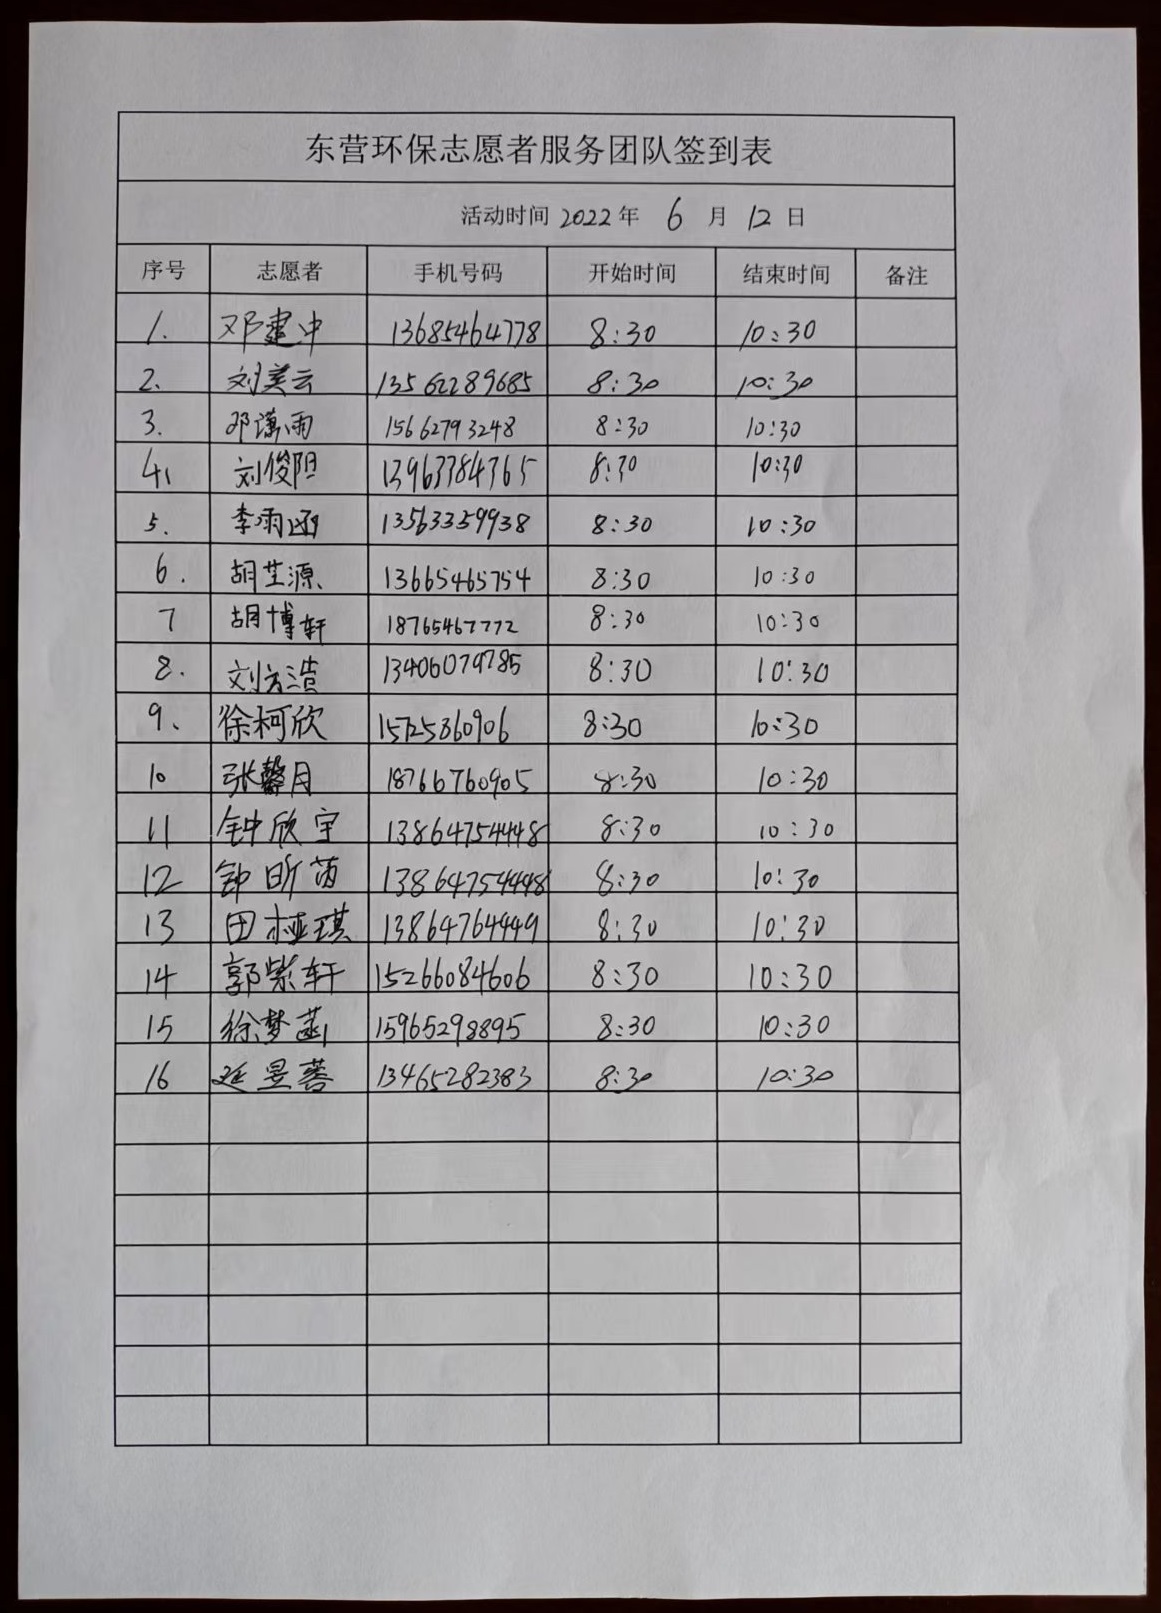 东营环保志愿者服务团队签到表
活动时间 2022 年 6 月 12 日
序号 志愿者 手机号码 开始时间 结束时间 备注
1. 邓建中 13685464778 8:30 10:30
2. 刘美云 13562289685 8:30 10:30
3. 邓潇雨 15662793248 8:30 10:30
4. 刘俊阳 13963384365 8:30 10:30
5. 李雨函 13563359938 8:30 10:30
6. 胡芷源 13665465754 8:30 10:30
7 胡博轩 18765467772 8:30 10:30
8. 刘方浩 13406079785 8:30 10:30
9、 徐柯欣 15725360906 8:30 10:30
10 张馨月 18766760905 8:30 10:30
11 钟欣宇 13864754448 8:30 10:30
12 钟昕茵 13864754448 8:30 10:30
13 田桠琪 13864764449 8:30 10:30
14 郭紫轩 15266084606 8:30 10:30
15 徐梦菡 15965298895 8:30 10:30
16 延昱蓉 13465282383 8:30 10:30